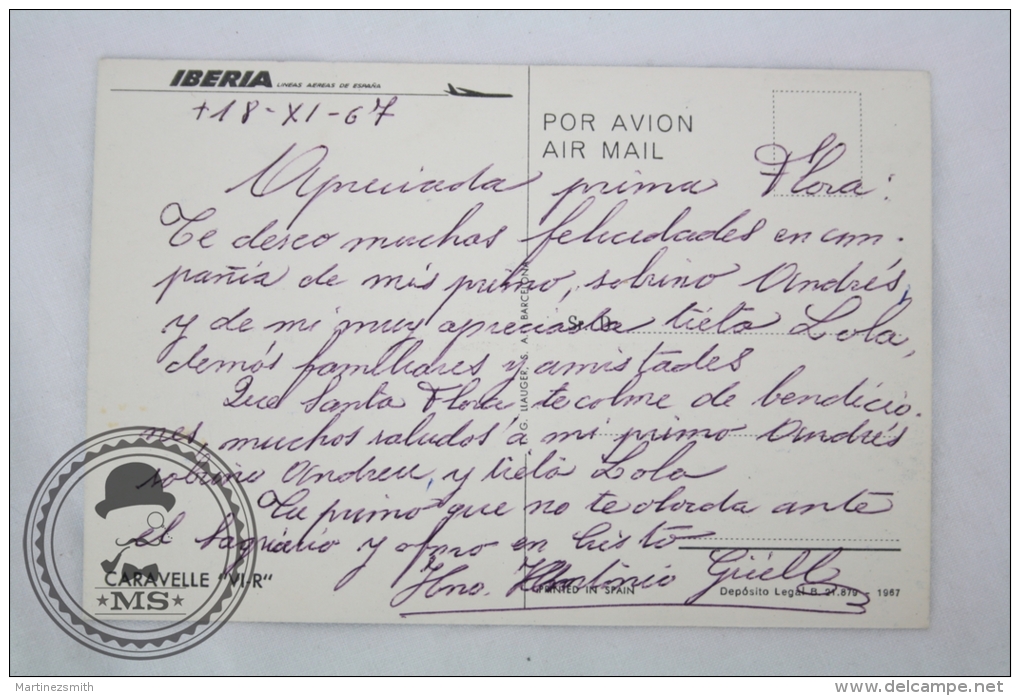 IBERIA LINEAS AEREAS DE ESPAÑA
+18-XI-67
POR AVION
AIR MAIL
Apreciada prima Flora:
Te deseo muchas felicidades en com-
pañia de mis primo, sobrino Andrés,
y de mi muy apreciada tieta Lola,
demás familiares y amistades
Que Santa Flora te colme de bendicio-
nes, muchos saludos a mi primo Andrés
sobrino Andreu, y tieta Lola
Tu primo que no te olvida ante
el Sagrario y en Cristo
Hno. Antonio Güell
S. D.
G. LLAUGER, S. A. BARCELONA
CARAVELLE "VI-R"
PRINTED IN SPAIN
Depósito Legal B. 21.879 - 1967
★MS★
Martinezsmith
delcampe.net